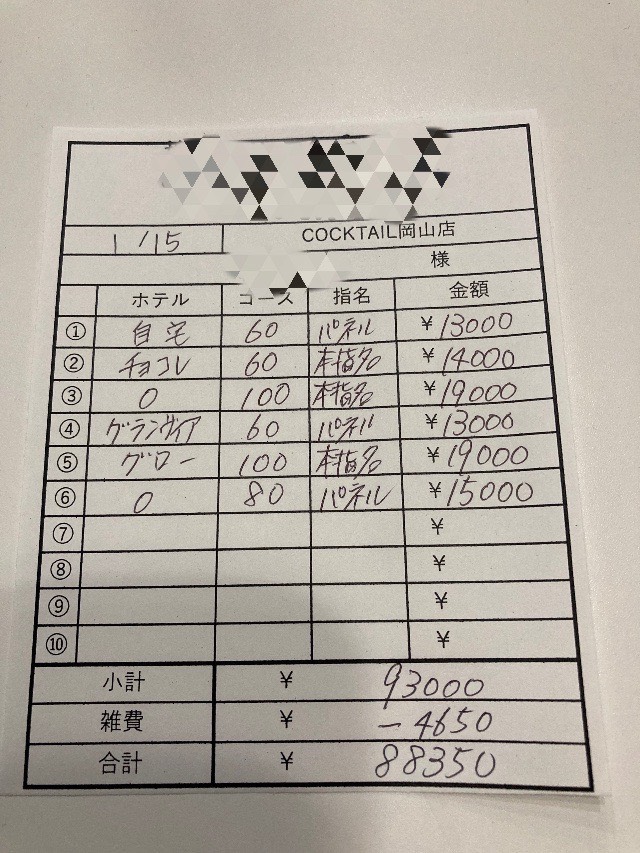 1/15 COCKTAIL岡山店
様
ホテル コース 指名 金額
① 自宅 60 パネル ¥13000
② チョコレ 60 本指名 ¥14000
③ 0 100 本指名 ¥19000
④ グランヴィア 60 パネル ¥13000
⑤ グロー 100 本指名 ¥19000
⑥ 0 80 パネル ¥15000
⑦ ¥
⑧ ¥
⑨ ¥
⑩ ¥
小計 ¥ 93000
雑費 ¥ -4650
合計 ¥ 88350